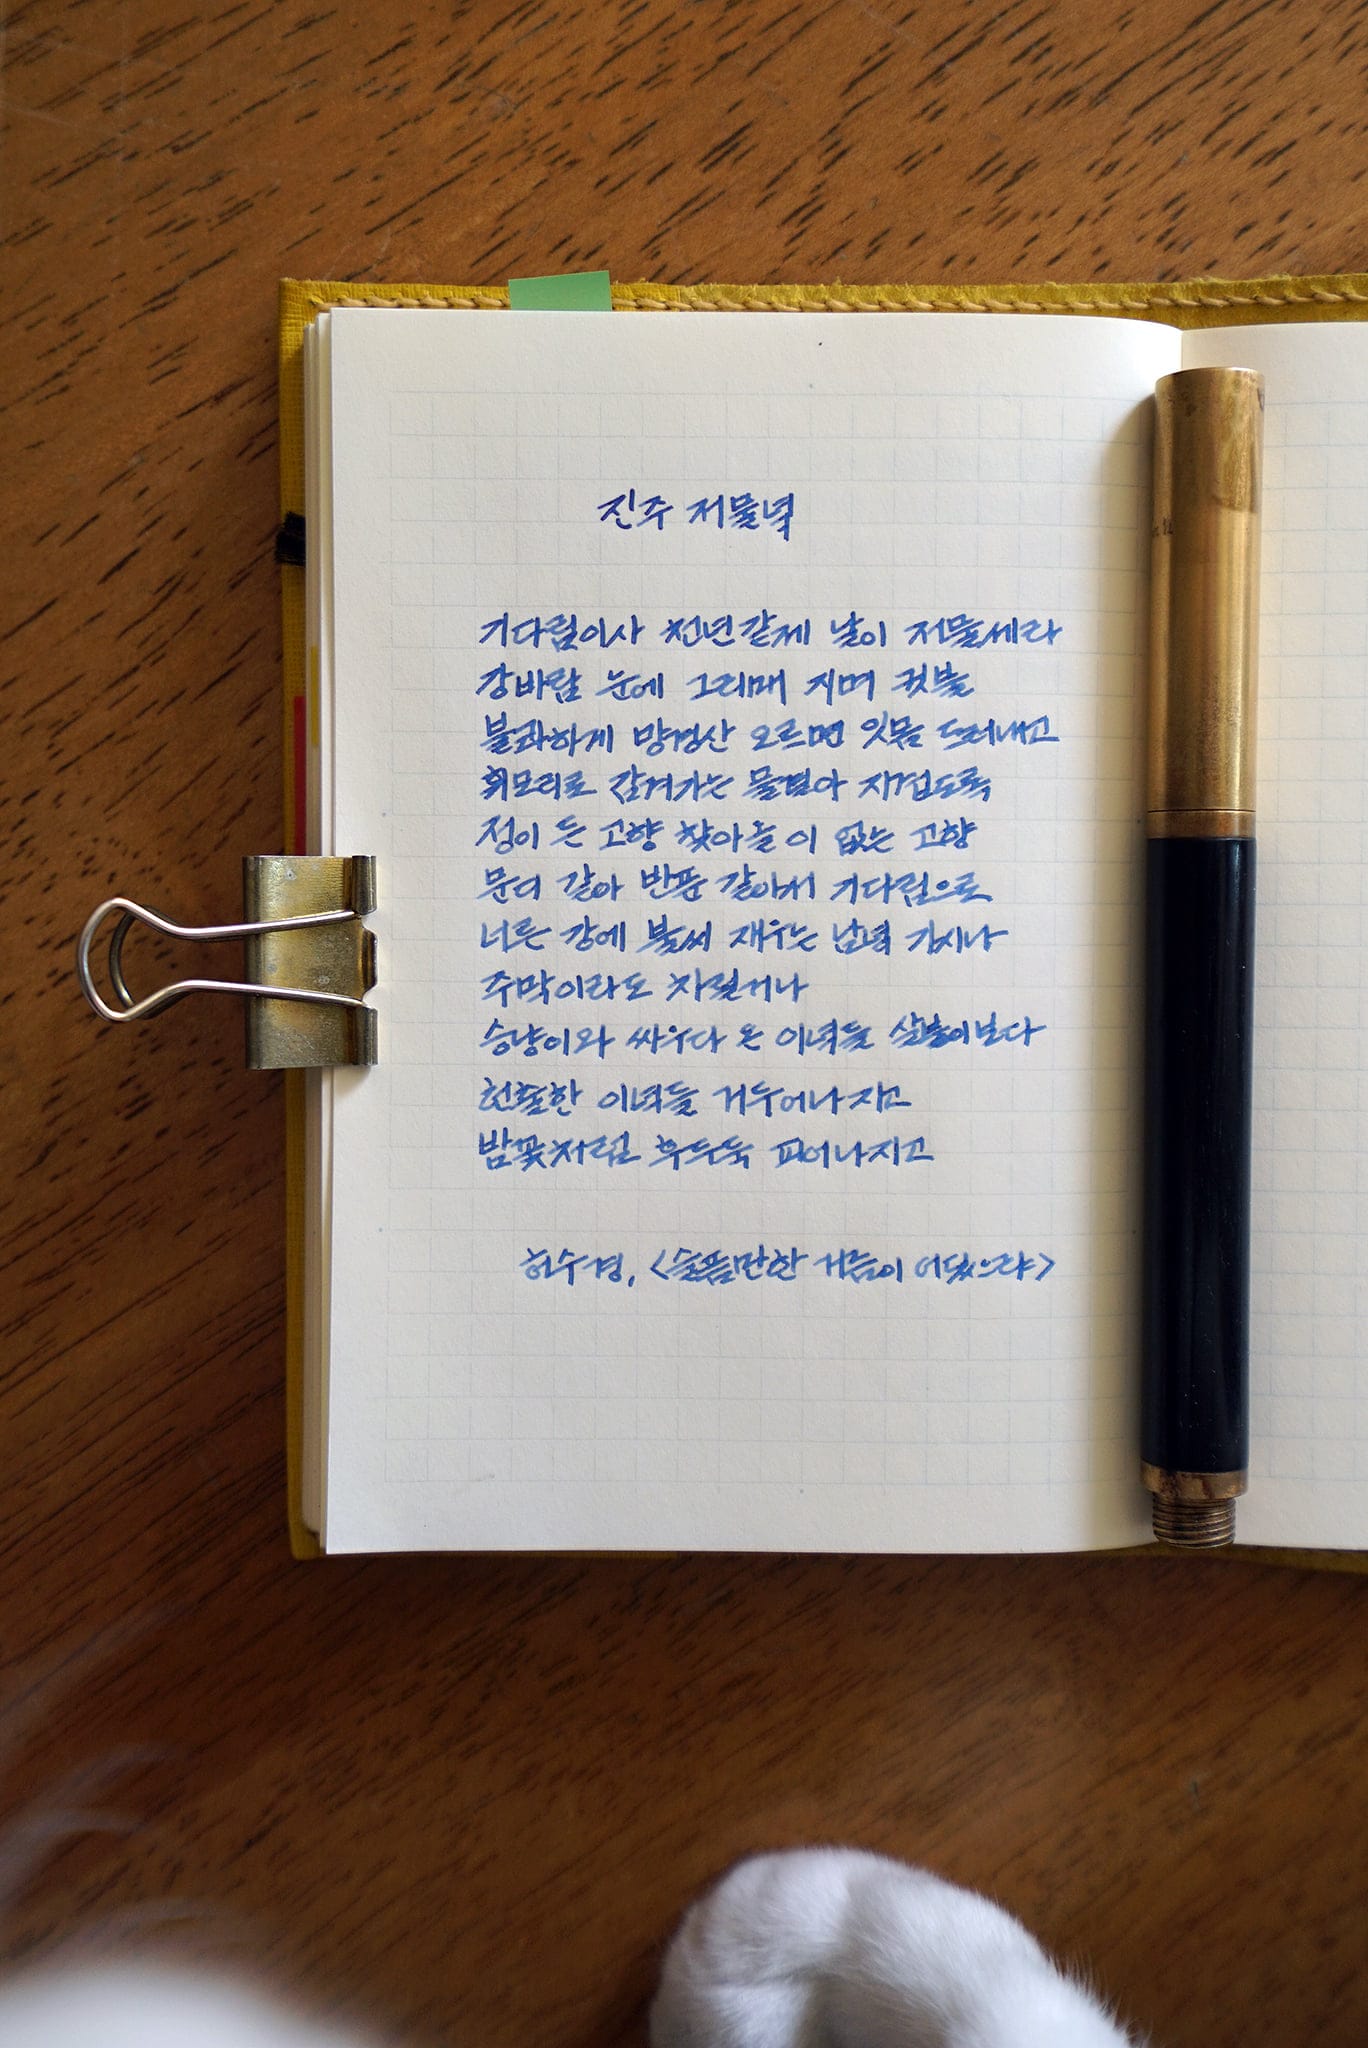 진주 저물녘
기다림이사 천년같제 날이 저물세라
강바람 눈에 그리매 지며 귓볼
불콰하게 망경산 오르면 잇몸 드러내고
휘모리로 감겨가는 물결아 지겹도록
정이 든 고향 찾아올 이 없는 고향
문디 같아 반푼 같아서 기다림으로
너른 강에 불씨 재우는 남녘 가시나
주막이라도 차릴거나
승냥이와 싸우다 온 이녁들 살붙이보다
헌출한 이녁들 거두어나지고
밤꽃처럼 후두둑 피어나지고
허수경, <슬픔만한 거름이 어딨으랴>